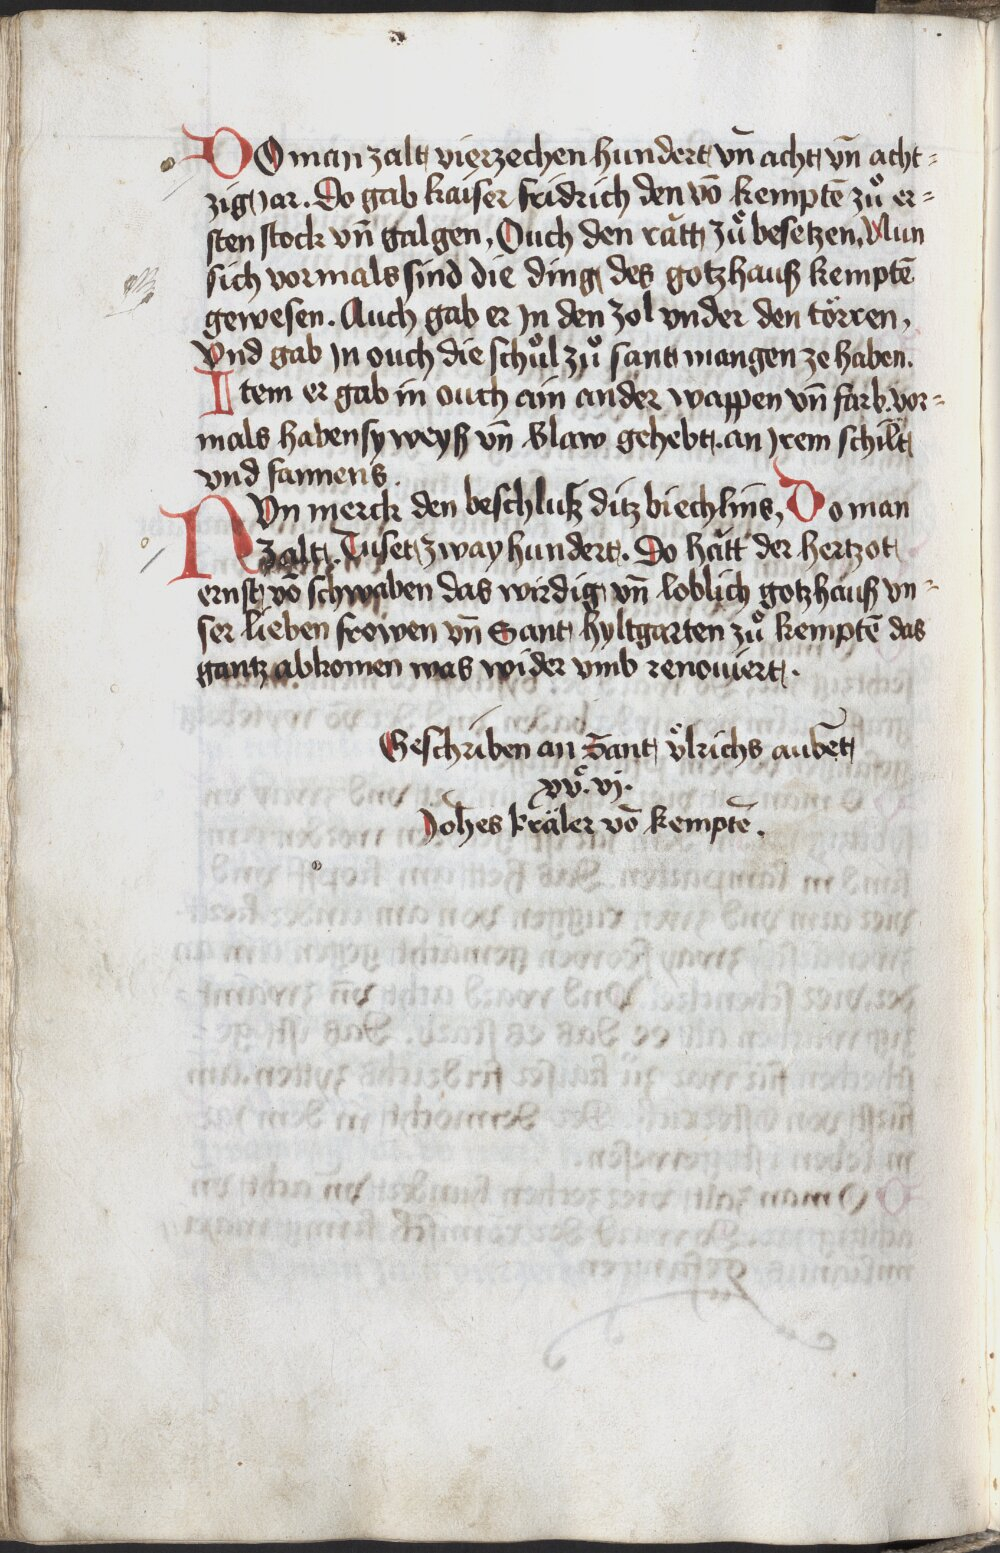 DO man zalt vierzechen hundert vn̄ acht vn̄ acht-
zig jar. Do gab kaiser fridrich den vō kemptē zů er-
sten stock vn̄ galgen, Ouch den rătt zů besetzen, Nun
sich vormals sind die ding des gotzhauß kemptē
gewesen. Auch gab er In den zol vnder den törren,
Vnd gab In ouch die schůl zů sant mangen ze haben.
Item er gab in ouch ain ander wappen vn̄ farb. vor-
mals haben sy weyß vn̄ blaw gehebt. an Irem schilt
vnd fannens.
NVn merck den beschlutz ditz biechlins, Do man
zalt. Tuset zway hundert. Do hătt der hertzot
ernst vō schwaben das wirdig vn̄ loblich gotzhauß vn-
ser lieben frowen vn̄ Sant hyltgarten zů kemptē das
gantz abkomen was wider vmb renouiert.
Geschriben an Sant vͦlrichs aubēt
xvͦ. vj.
Johēs kräler vō kemptē.